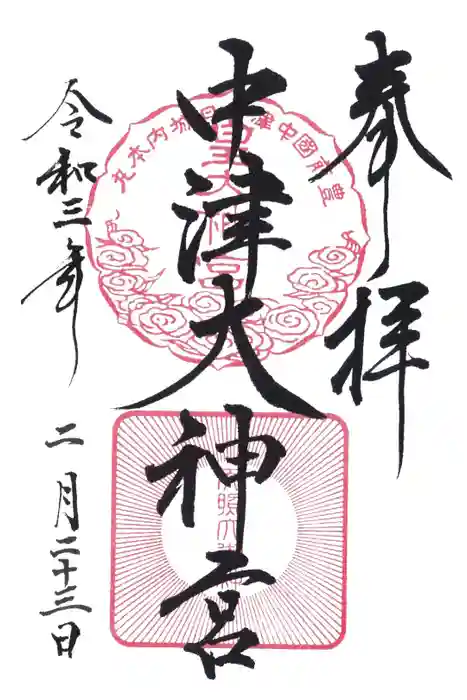 奉拝
中津大神宮
令和三年
二月二十三日
豊前國中津城内本丸